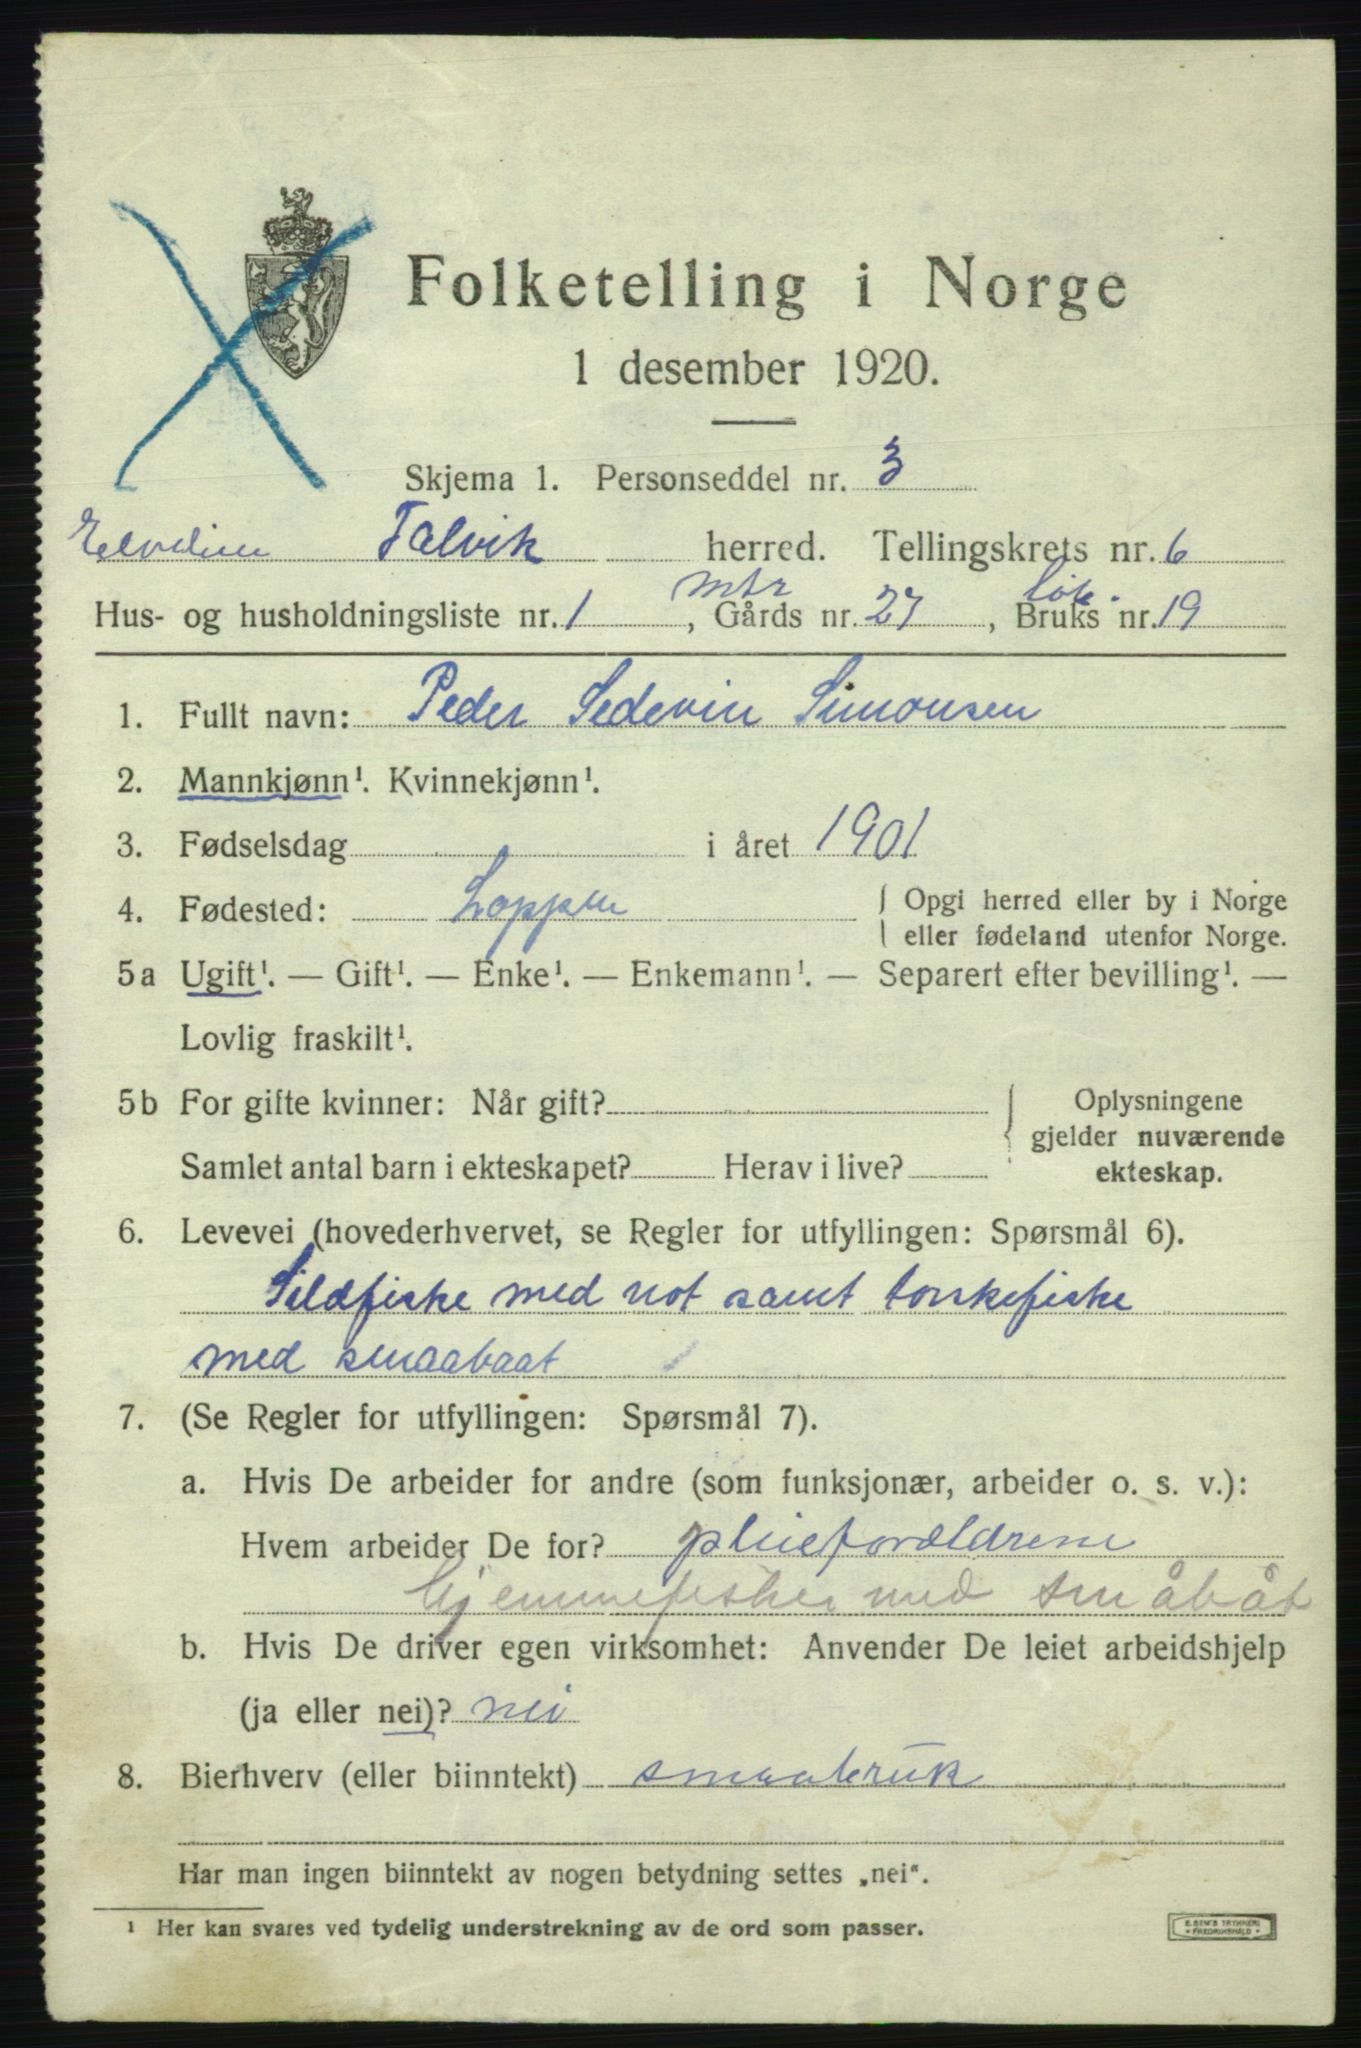 Folketelling i Norge
1 desember 1920.
Skjema 1. Personseddel nr. 3
Talvik herred. Tellingskrets nr. 6
mtr løb.
Hus- og husholdningsliste nr. 1, Gårds nr. 27, Bruks nr. 19
1. Fullt navn: Peder Sedevin Simonsen
2. Mannkjønn¹. Kvinnekjønn¹.
3. Fødselsdag i året 1901
4. Fødested: Loppen { Opgi herred eller by i Norge
eller fødeland utenfor Norge.
5a Ugift¹. — Gift¹. — Enke¹. — Enkemann¹. — Separert efter bevilling¹. —
Lovlig fraskilt¹.
5b For gifte kvinner: Når gift?
Samlet antal barn i ekteskapet? Herav i live?
{ Oplysningene
gjelder nuværende
ekteskap.
6. Levevei (hovederhvervet, se Regler for utfyllingen: Spørsmål 6).
Sildfiske med not samt torskefiske
med smaabaat
7. (Se Regler for utfyllingen: Spørsmål 7).
a. Hvis De arbeider for andre (som funksjonær, arbeider o. s. v.):
Hvem arbeider De for? pleieforældrene
hjemmefisker med småbåt
b. Hvis De driver egen virksomhet: Anvender De leiet arbeidshjelp
(ja eller nei)? nei
8. Bierhverv (eller biinntekt) smaabruk
Har man ingen biinntekt av nogen betydning settes „nei“.
¹ Her kan svares ved tydelig understrekning av de ord som passer.
E. SEM'S TRYKKERI
FREDRIKSHALD